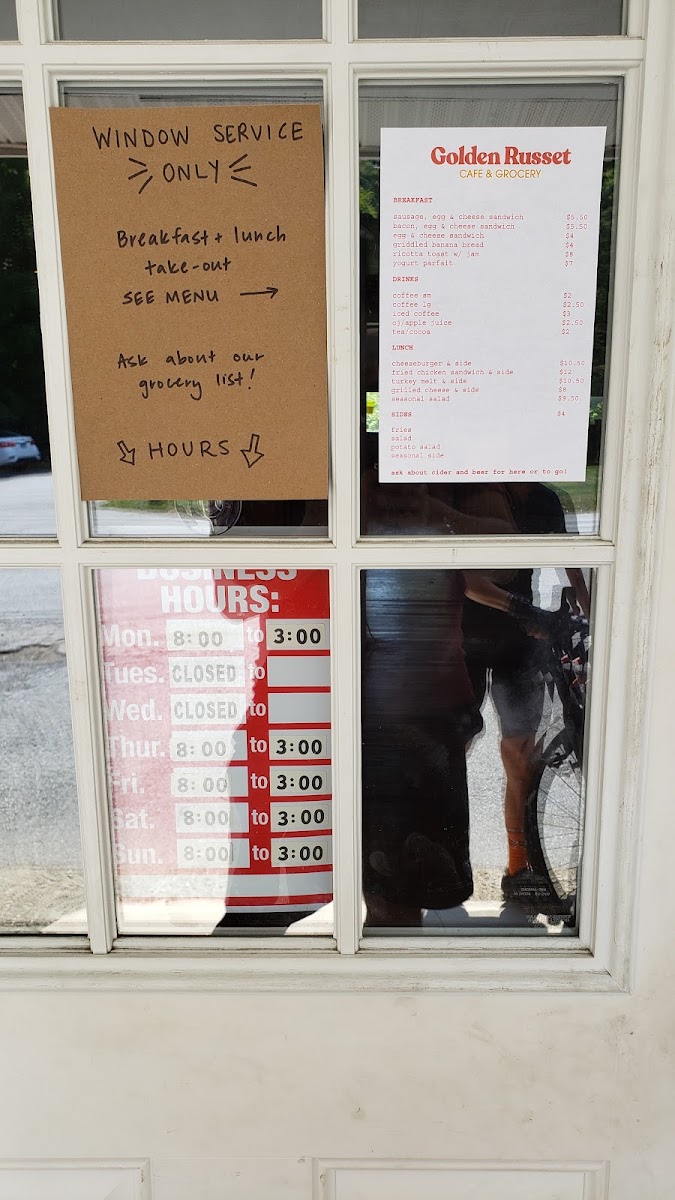 WINDOW SERVICE
ONLY
Breakfast + lunch
take-out
SEE MENU →
Ask about our
grocery list!
HOURS
Golden Russet
CAFE & GROCERY
BREAKFAST
sausage, egg & cheese sandwich $5.50
bacon, egg & cheese sandwich $5.50
egg & cheese sandwich $4
griddled banana bread $4
ricotta toast w/ jam $8
yogurt parfait $7
DRINKS
coffee sm $2
coffee lg $2.50
iced coffee $3
oj/apple juice $2.50
tea/cocoa $2
LUNCH
cheeseburger & side $10.50
fried chicken sandwich & side $12
turkey melt & side $10.50
grilled cheese & side $8
seasonal salad $9.50
SIDES $4
fries
salad
potato salad
seasonal side
ask about cider and beer for here or to go!
BUSINESS
HOURS:
Mon. 8:00 to 3:00
Tues. CLOSED to
Wed. CLOSED to
Thur. 8:00 to 3:00
Fri. 8:00 to 3:00
Sat. 8:00 to 3:00
Sun. 8:00 to 3:00